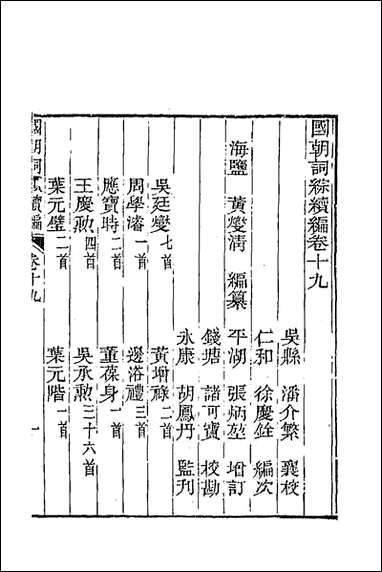 國朝詞綜續編卷十九
吳縣 潘介繁 襄校
仁和 徐慶銓 編次
海鹽 黃燮清 編纂 平湖 張炳堃 增訂
錢塘 諸可寶 校勘
永康 胡鳳丹 監刊
吳廷燮七首 黃增祿二首
周學濬一首 邊浴禮三首
應寶時二首 董葆身一首
王慶勳四首 吳承勳三十六首
葉元墀二首 葉元階一首
國朝詞綜續編 卷十九 一